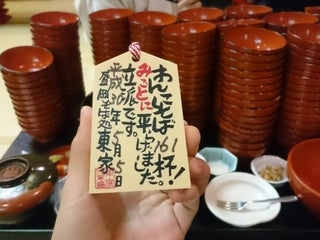 わんこそば161杯!
みごとに平げました。
立派です。
平成30年5月5日
盛岡そば処東家